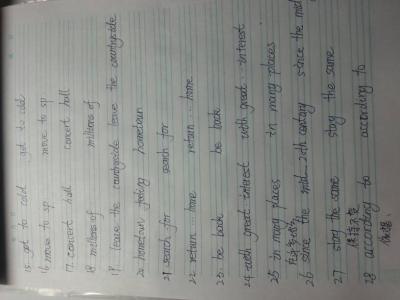 15 get to cold get to cold
16 move to sp move to sp
17. concert hall concert hall
18. millions of millions of
19. leave the countryside leave the countryside
20. hometown feeling hometown
21 search for search for
22. return home return home
23 be back be back
24 with great interest with great interest
25 in many places in many places
在许多地方
26 since the mid-20th century since the mid
27 stay the same stay the same
保持不变
28 according to according to
依据